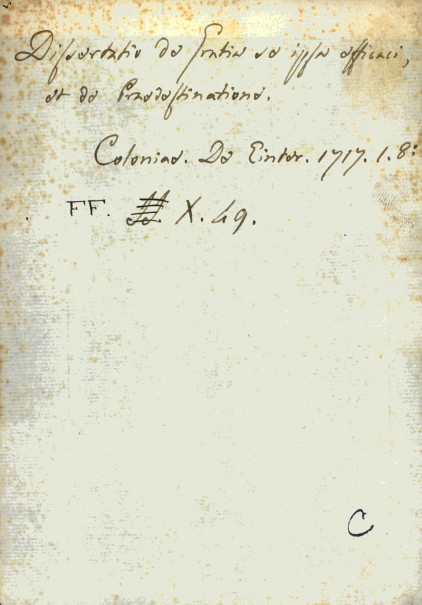 Dissertatio de Gratia se ipsa efficaci,
et de Praedestinatione.
Coloniae. De Einter. 1717. 1. 8:
FF. X. 49.
C